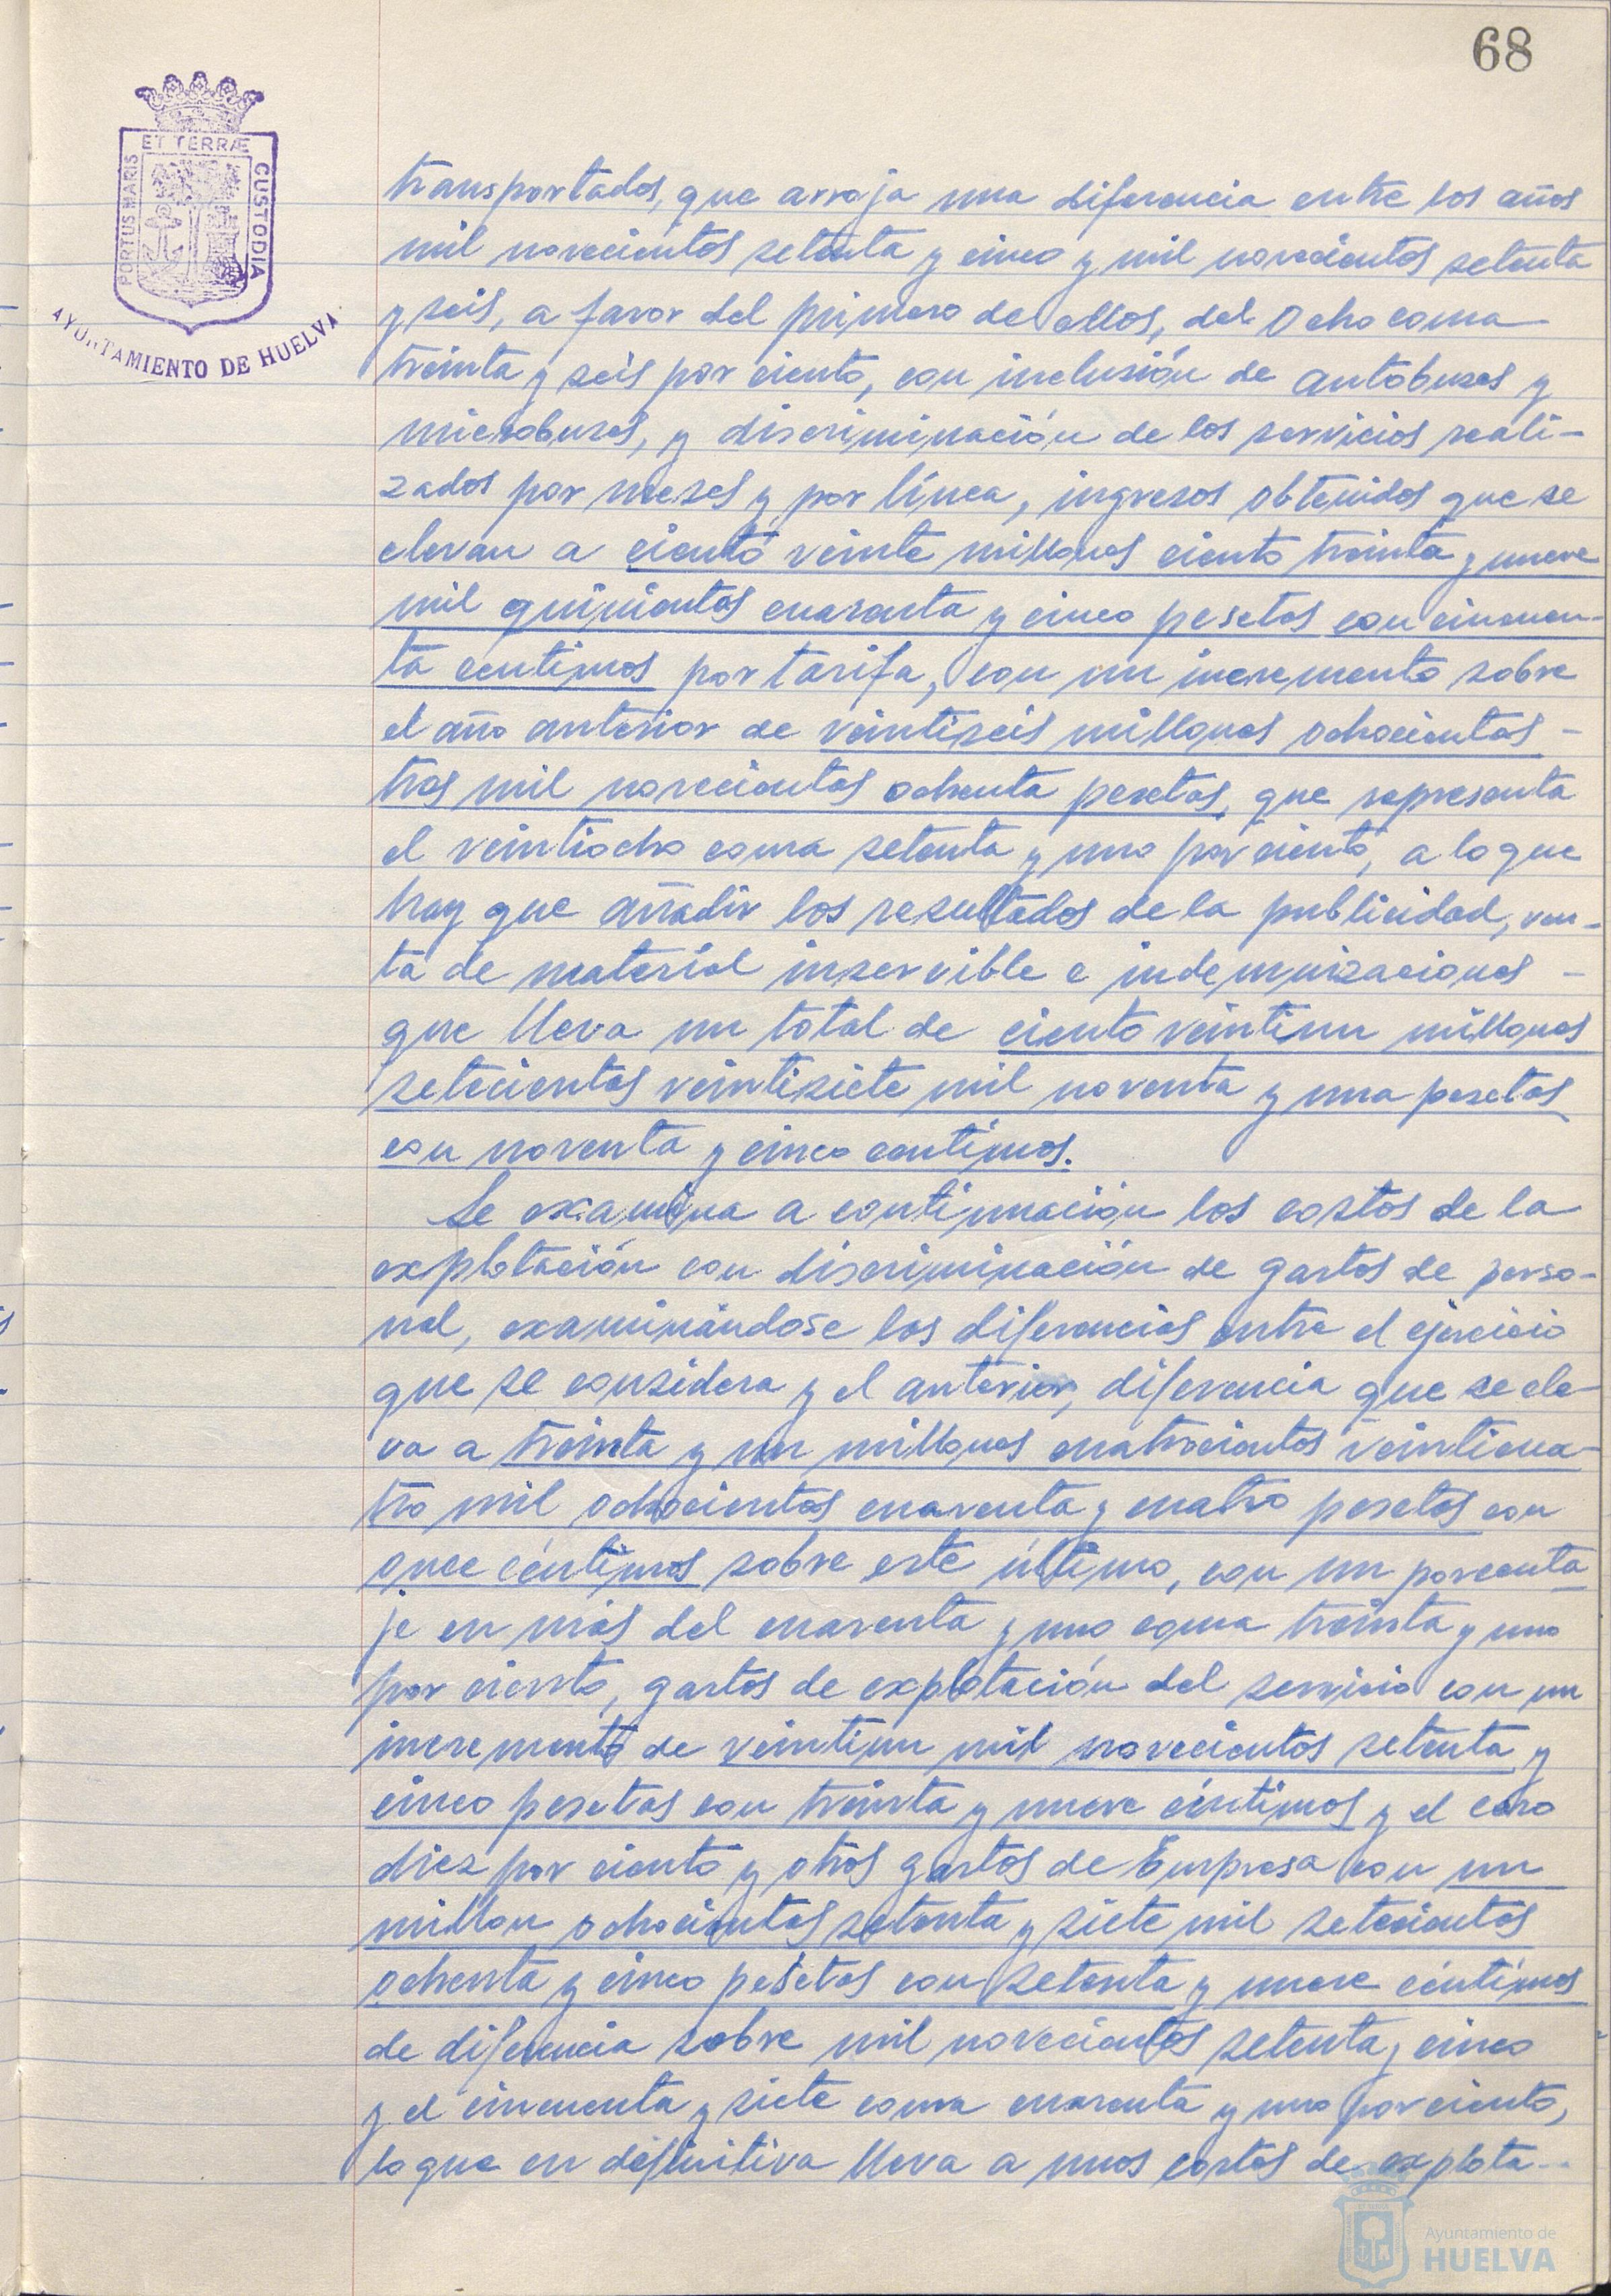 68
ET TERRÆ
PORTUS MARIS
CUSTODIA
AYUNTAMIENTO DE HUELVA
transportados, que arroja una diferencia entre los años
mil novecientos setenta y cinco y mil novecientos setenta
y seis, a favor del primero de ellos, del ocho coma
treinta y seis por ciento, con inclusión de autobuses y
microbuses, y discriminación de los servicios reali-
zados por meses y por línea, ingresos obtenidos que se
elevan a ciento veinte millones ciento treinta y nueve
mil quinientas cuarenta y cinco pesetas con cincuen-
ta centimos por tarifa, con un incremento sobre
el año anterior de veintiseis millones ochocientas -
tres mil novecientas ochenta pesetas, que representa
el veintiocho coma setenta y uno por ciento, a lo que
hay que añadir los resultados de la publicidad, ven-
ta de material inservible e indemnizaciones -
que lleva un total de ciento veintiun millones
setecientas veintisiete mil noventa y una pesetas
con noventa y cinco centimos.
Se examina a continuación los costos de la
explotación con discriminación de gastos de perso-
nal, examinándose las diferencias entre el ejercicio
que se considera y el anterior, diferencia que se ele-
va a treinta y un millones cuatrocientos veinticua-
tro mil ochocientas cuarenta y cuatro pesetas con
once céntimos sobre este último, con un porcenta-
je en más del cuarenta y uno coma treinta y uno
por ciento, gastos de explotación del servicio con un
incremento de veintiun mil novecientos setenta y
cinco pesetas con treinta y nueve céntimos y el cero
diez por ciento y otros gastos de Empresa con un
millon ochocientas setenta y siete mil setecientas
ochenta y cinco pesetas con setenta y nueve céntimos
de diferencia sobre mil novecientos setenta y cinco
y el cincuenta y siete coma cuarenta y uno por ciento,
lo que en definitiva lleva a unos costos de explota-
Ayuntamiento de
HUELVA